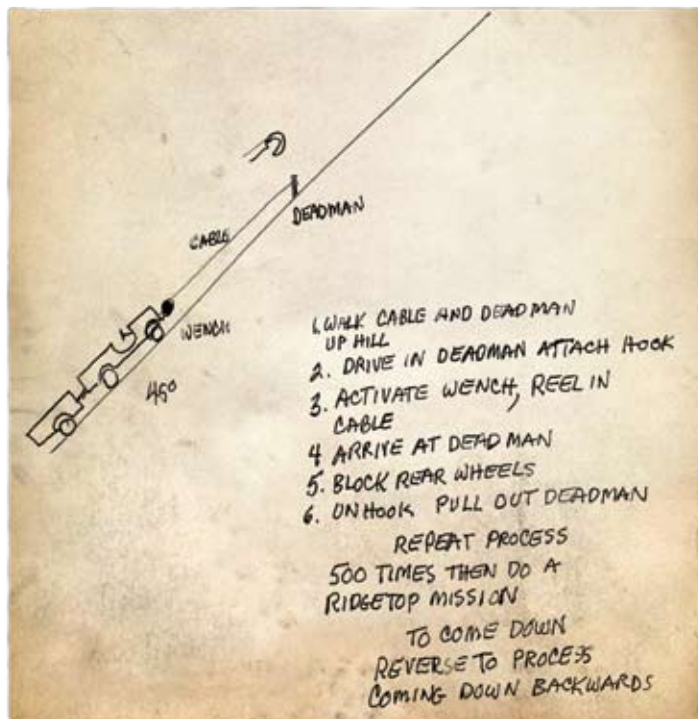 DEADMAN
CABLE
WENCH
45°
1. WALK CABLE AND DEADMAN
UP HILL
2. DRIVE IN DEADMAN ATTACH HOOK
3. ACTIVATE WENCH, REEL IN
CABLE
4 ARRIVE AT DEADMAN
5. BLOCK REAR WHEELS
6. UNHOOK PULL OUT DEADMAN
REPEAT PROCESS
500 TIMES THEN DO A
RIDGETOP MISSION
TO COME DOWN
REVERSE TO PROCESS
COMING DOWN BACKWARDS